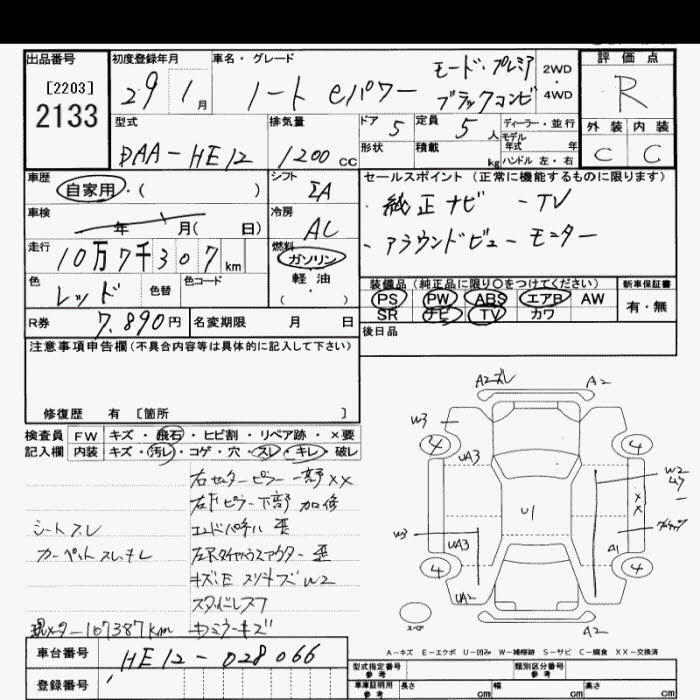 出品番号
[2203]
2133
初度登録年月
29 1月
車名・グレード
ノート eパワー
モード・プレミア
ブラックコンビ
2WD
4WD
評価点
R
型式
DAA-HE12
排気量
1200cc
ドア 5
定員 5人
ディーラー・並行
モデル
年式 年
形状
積載 kg
ハンドル 左・右
外装 内装
C C
車歴
自家用・( )
シフト
ΣA
車検
年 月( 日)
冷房
AC
走行
10万7千307km
燃料
ガソリン
軽油・
( )
色
レッド
色替
色コード
R券 7,890円
名変期限 月 日
セールスポイント (正常に機能するものに限ります)
・純正ナビ -TV
- アラウンドビューモニター
装備品 (純正品に限り○をつけてください)
PS PW ABS エアB AW
SR ナビ TV カワ
新車保証書
有・無
後日品
注意事項申告欄(不具合内容等は具体的に記入して下さい)
修復歴 有 [箇所 ]
検査員 FW キズ・飛石・ヒビ割・リペア跡・×要
記入欄 内装 キズ・汚レ・コゲ・穴・スレ・キレ・破レ
右センターピラー一部××
右Fピラー下部 加修
シートスレ
エンドパネル 歪
カーペットスレ・キレ
左Rタイヤハウスアウター 歪
スタッドレス7
現メーター107387km
A2ズレ A2
W3
4 4
UA3
W2
U1
××
W3
UA3
A1
4 4
UA2
スペア
A2
A-キズ E-エクボ U-凹み W-補修跡 S-サビ C-腐食 XX-交換済
車台番号
HE12-028066
登録番号
型式指定番号
参考
類別区分番号
参考
車庫証明用
参考
長さ cm 幅 cm 高さ cm